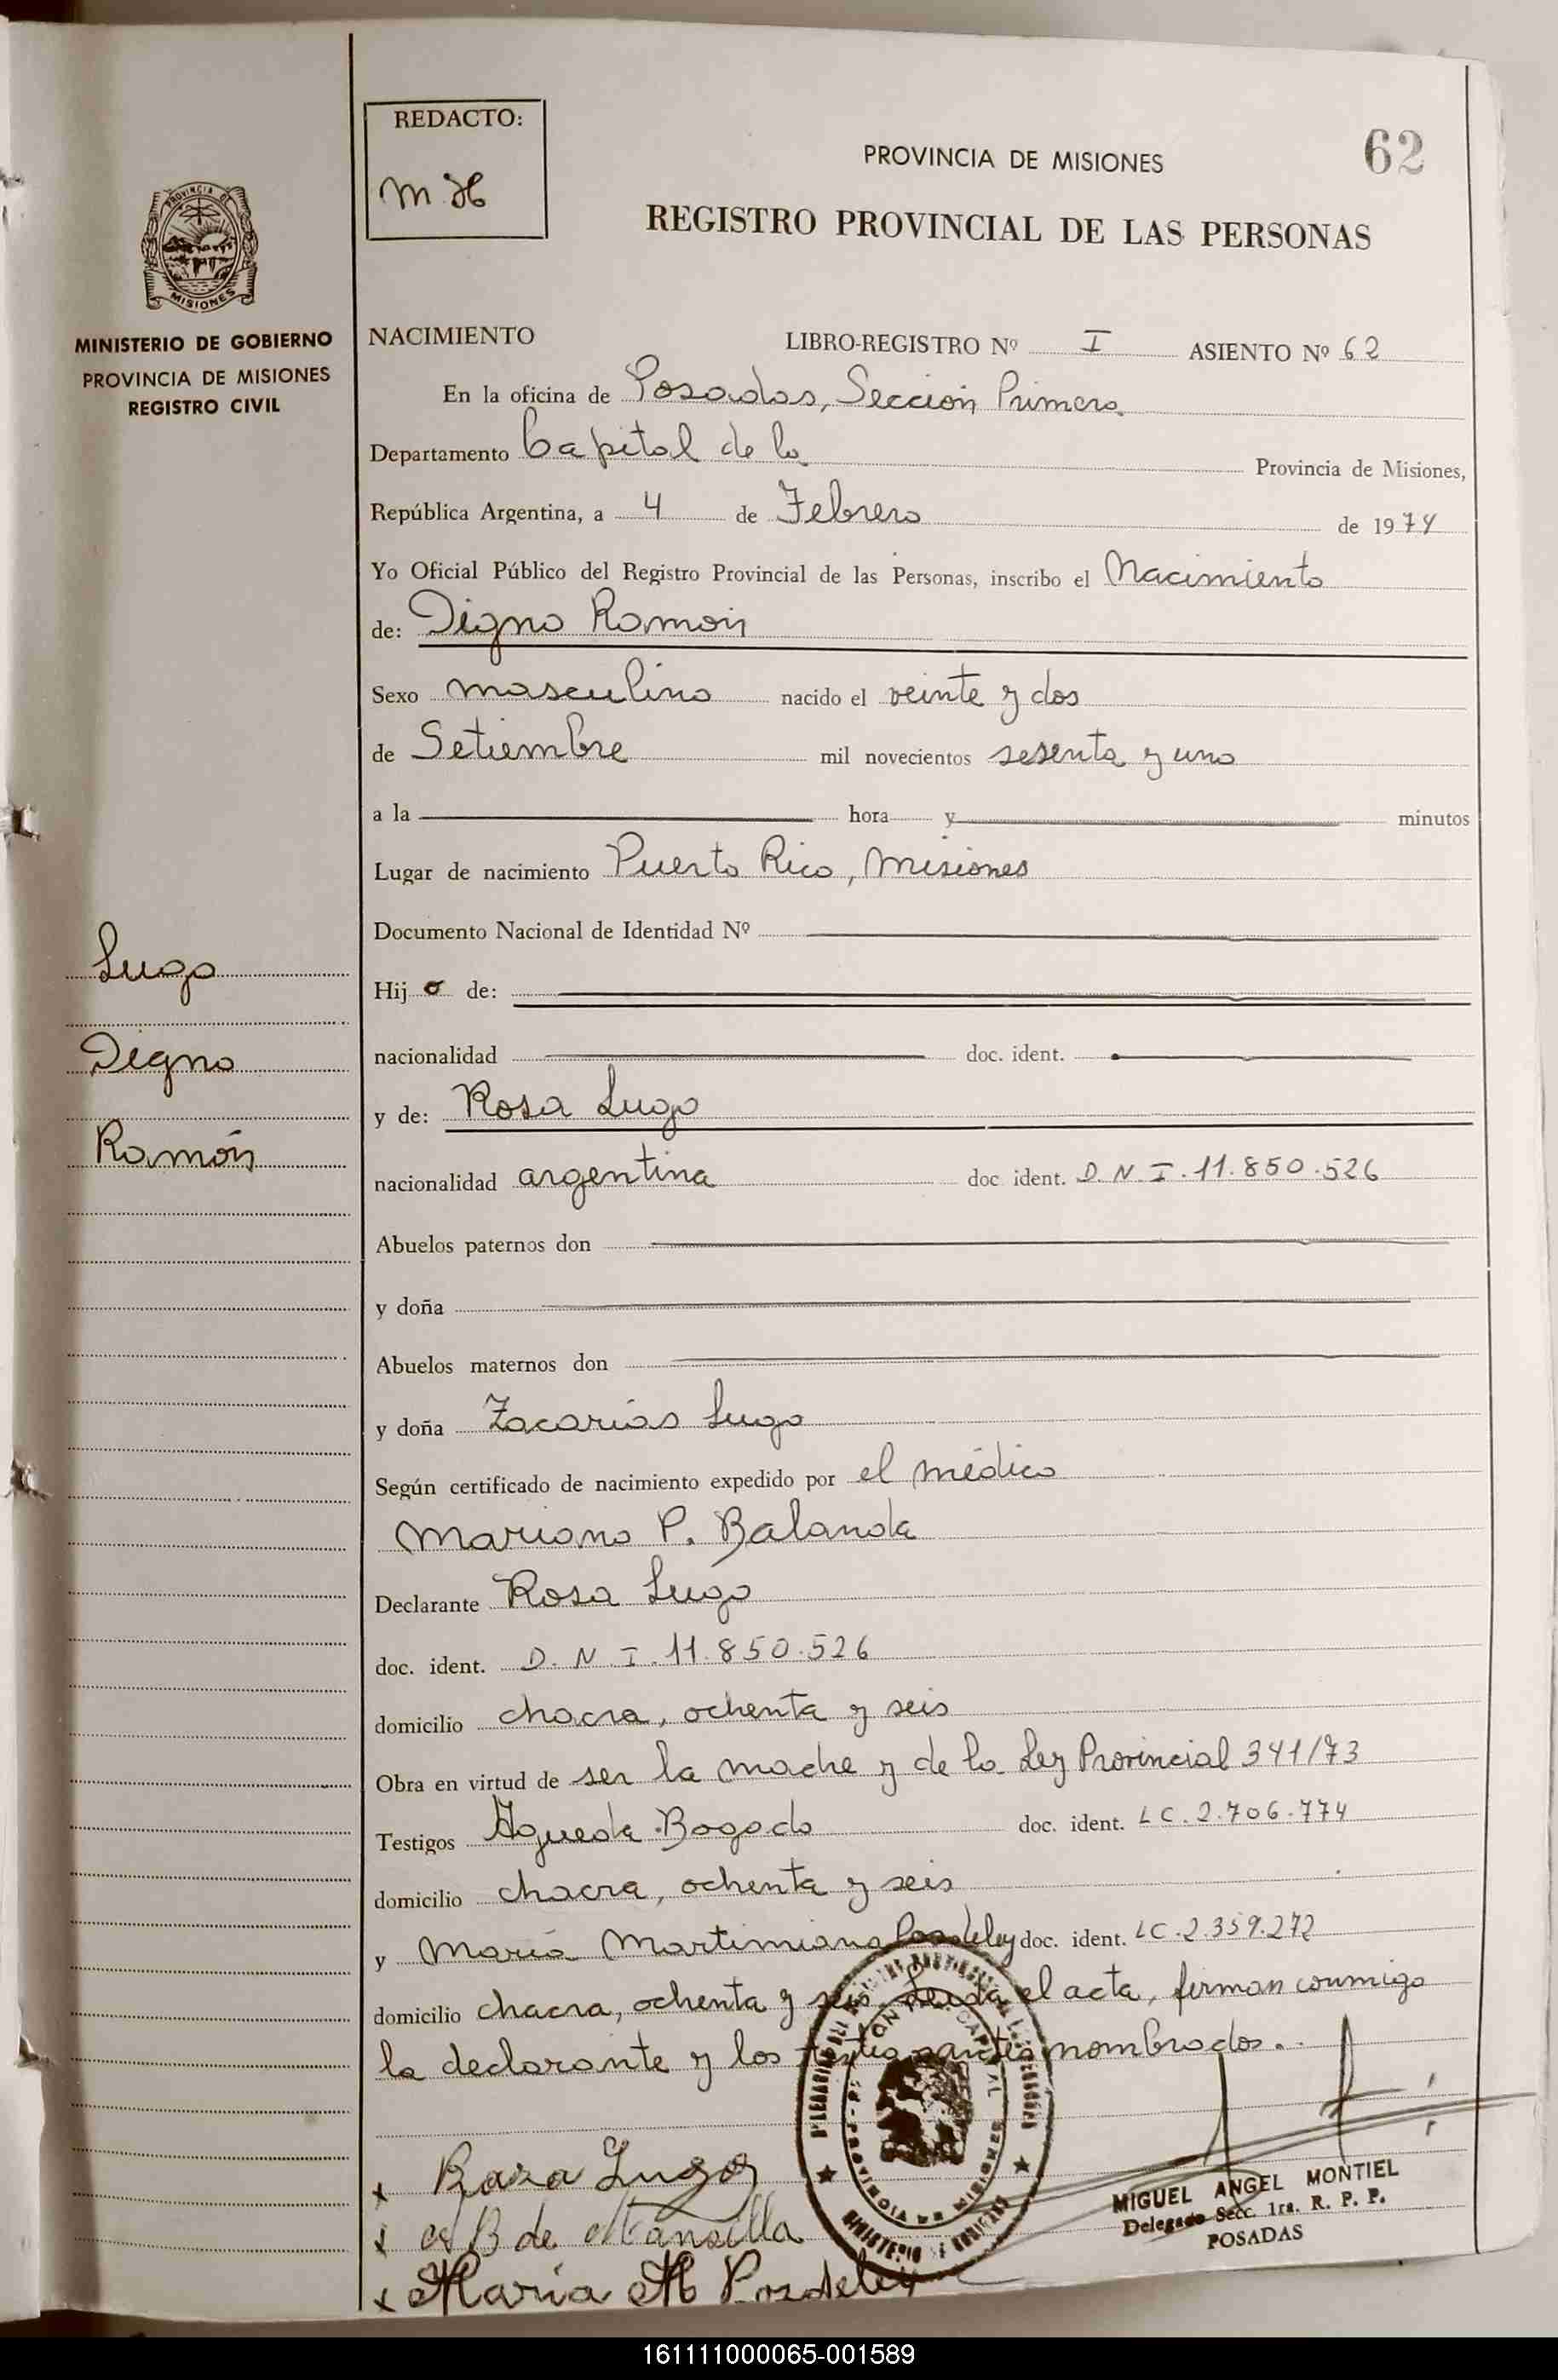 REDACTO:
M. H
PROVINCIA DE MISIONES
62
REGISTRO PROVINCIAL DE LAS PERSONAS
PROVINCIA DE
MISIONES
MINISTERIO DE GOBIERNO
PROVINCIA DE MISIONES
REGISTRO CIVIL
NACIMIENTO LIBRO-REGISTRO Nº I ASIENTO Nº 62
En la oficina de Posadas, Sección Primera
Departamento Capital de la Provincia de Misiones,
República Argentina, a 4 de Febrero de 1974
Yo Oficial Público del Registro Provincial de las Personas, inscribo el Nacimiento
de: Digno Ramón
Sexo masculino nacido el veinte y dos
de Setiembre mil novecientos sesenta y uno
a la hora y minutos
Lugar de nacimiento Puerto Rico, Misiones
Documento Nacional de Identidad Nº
Lugo
Digno
Ramón
Hijo de:
nacionalidad doc. ident.
y de: Rosa Lugo
nacionalidad argentina doc. ident. D.N.I. 11.850.526
Abuelos paternos don
y doña
Abuelos maternos don
y doña Zacarias Lugo
Según certificado de nacimiento expedido por el médico
Mariano P. Balanda
Declarante Rosa Lugo
doc. ident. D.N.I. 11.850.526
domicilio chacra, ochenta y seis
Obra en virtud de ser la madre y de la Ley Provincial 341/73
Testigos Agueda Bogado doc. ident. LC. 2.706.774
domicilio chacra, ochenta y seis
y María Martimiana Posdeley doc. ident. LC. 2.359.272
domicilio chacra, ochenta y seis. Leída el acta, firman conmigo
la declarante y los testigos antes nombrados.
x Rosa Lugo
x A B de Mansilla
x María M Posdeley
MIGUEL ANGEL MONTIEL
Delegado Secc. 1ra. R. P. P.
POSADAS
161111000065-001589